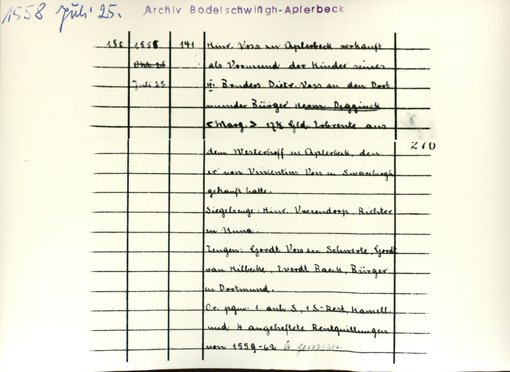 1558 Juli 25. Archiv Bodelschwingh-Aplerbeck
180 1558 141 Hinr. Voss in Aplerbeck verkauft
Okt 26 als Vormund der Kinder seines
Juli 25 Bruders Dietr. Voss an den Dort
munder Bürger Herm. Degginck
<Marg.> Gld. Erbrente aus
270
dem Westerhoff in Aplerbeck, den
er von Vincentius Voss in
gekauft hatte.
Siegelzeuge: Hinr. Vresendorp, Richter
in Unna.
Zeugen: Gordt Voss in Schwerte, Gordt
van Hilbecke, Everdt Baeck, Bürger
in Dortmund.
Or. pgm. 1 anh. S,
und 4 angeheftete Rentquittungen
von 1559-62